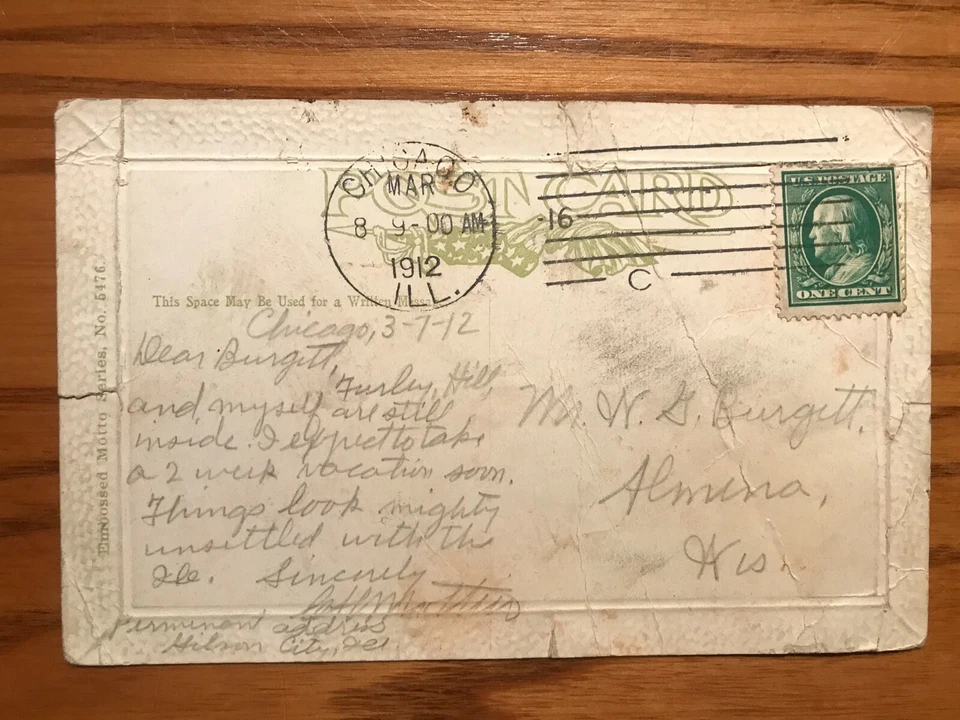 CHICAGO
MAR
8 9-00 AM
1912
ILL.
16
C
POST CARD
U.S. POSTAGE
ONE CENT
Embossed Motto Series, No. 5476.
This Space May Be Used for a Written Message
Chicago, 3-7-12
Dear Burgett,
Furley, Hill,
and myself are still
inside. I expect to take
a 2 week vacation soon.
Things look mighty
unsettled with the
Sincerely
Perminant address
City, Ill.
Mr. N. G. Burgett,
Almena,
Wis.